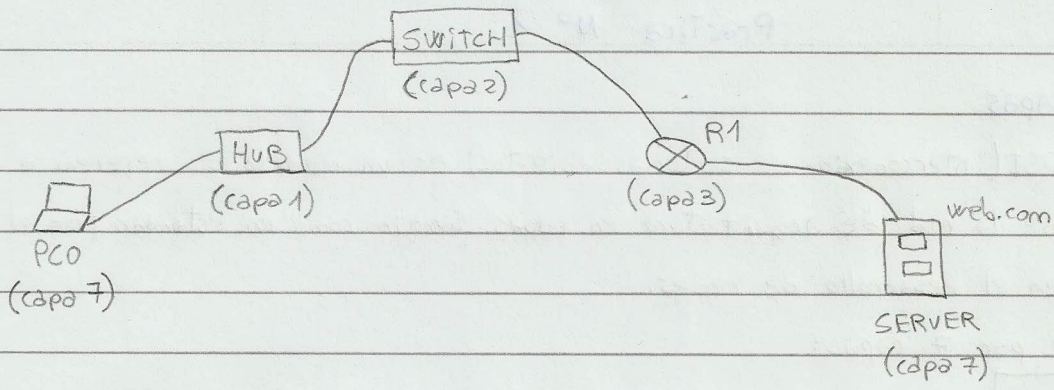 SWITCH
(capa 2)
HUB
(capa 1)
R1
(capa 3)
PC0
(capa 7)
web.com
SERVER
(capa 7)